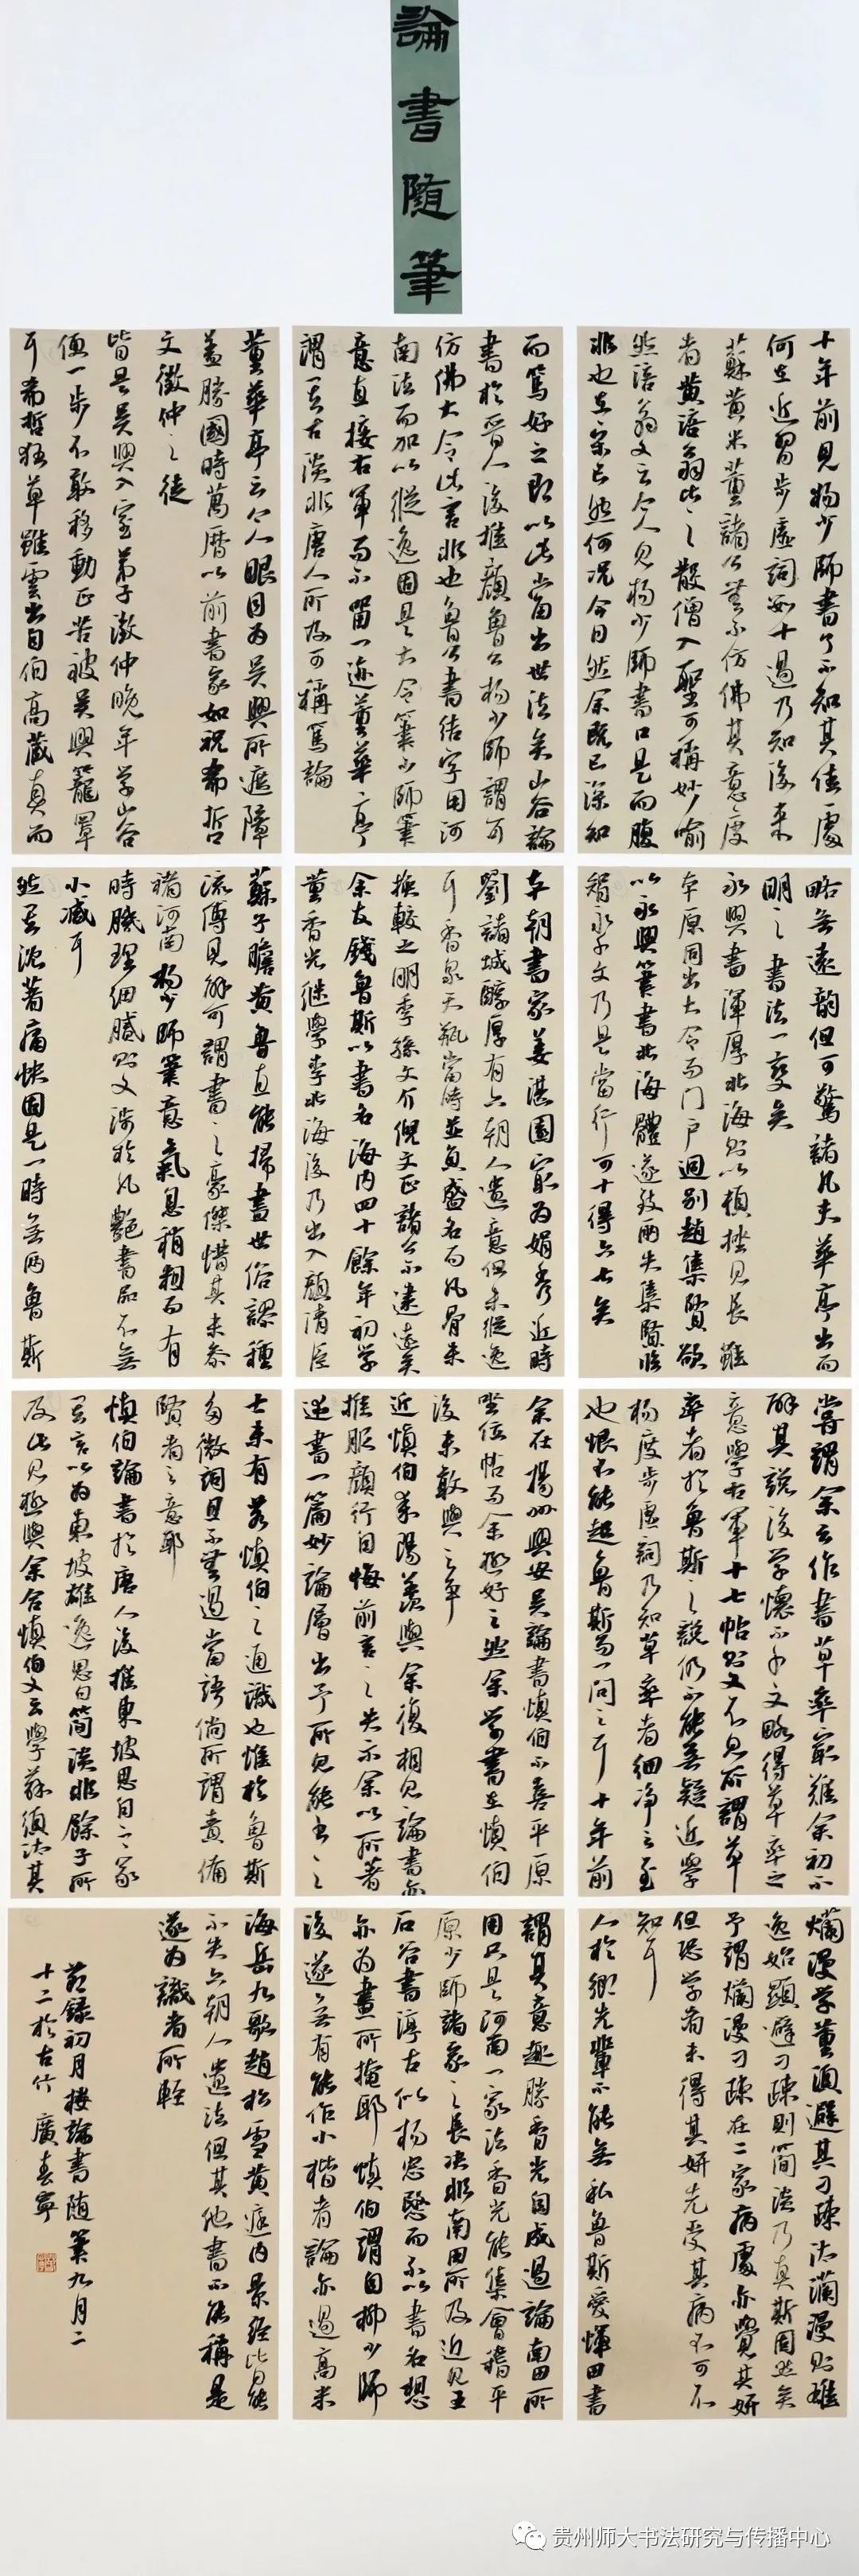 論書隨筆
十年前見楊少師書了不知其佳處
何在近習步虛詞數十過乃知後來
蘇黃米董諸公無不仿佛其意度
者黃涪翁比之散僧入聖可稱妙喻
然涪翁又云今人見楊少師書口是而腹
非也在宋已然何況今日然余既已深知
而篤好之即以此當出世法矣山谷論
書於晉人後推顏魯公楊少師謂可
仿佛大令此言非也魯公書結字用河
南法而加以縱逸固是大令筆少師筆
意直接右軍而不留一迹董華亭
謂其古淡非唐人所及可稱篤論
董華亭云今人眼目為吳興所遮障
蓋勝國時萬曆以前書家如祝希哲
文徵仲之徒
皆是吳興入室弟子徵仲晚年學山谷
便一步不敢移動正苦被吳興籠罩
耳希哲狂草雖云出自伯高藏真而
略無遠韻但可驚諸凡夫華亭出而
明之書法一變矣
永興書渾厚北海則以頓挫見長雖
本原同出大令而門戶迥別趙集賢欲
以永興筆書北海體遂致兩失集賢臨
智永千文乃是當行可十得六七矣
本朝書家姜湛園最為娟秀近時
劉諸城醇厚有六朝人遺意但未縱逸
耳香泉天瓶當時並負盛名而風骨未
換較之明季孫文介倪文正諸公不逮遠矣
余友錢魯斯以書名海內四十餘年初學
董香光繼學李北海後乃出入顏清臣
蘇子瞻黃魯直能掃盡世俗謬種
流傳見解可謂書之豪傑惜其未參
褚河南楊少師筆意氣息稍粗而有
時肌理細膩則又涉於凡艷書品不無
小減耳
然其沈著痛快固是一時無兩魯斯
嘗謂余云作書草率最難余初不
解其說後學懷而久之略得草率之
意學右軍十七帖則又不見所謂草
率者於魯斯之說仍不能無疑近學
楊度步虛詞乃知草率者細淨之至
也恨不能起魯斯而一問之耳十年前
余在揚州與毋吳論書慎伯不喜平原
坐位帖而余極好之然余學書在慎伯
後未敢與之爭
近慎伯來陽羨與余復相見論書亦
推服顏行自悔前言之失示余以所著
述書一篇妙論層出予所見能書之
士未有若慎伯之通識也惟於魯斯
多微詞且不無過當語倘所謂責備
賢者之意耶
慎伯論書於唐人後推東坡思白二家
其言以為東坡雄逸思白簡淡非餘子所
及此見極與余合慎伯又云學蘇須汰其
爛漫學董須避其刁疎汰瀾漫則雄
逸始顯避刁疎則簡淡乃真斯固然矣
予謂爛漫刁疎在二家病處亦覺其妍
但恐學者未得其妍先受其病不可不
知耳
人於鄉先輩不能無私魯斯愛惲田書
謂其意趣勝香光固成過論南田所
用只是河南一家法香光能集會稽平
原少師諸家之長決非南田所及近見王
石谷書淳古似楊忠愍而不以書名想
亦為畫所掩耶慎伯謂自柳少師
後遂無有能作小楷者論亦過高米
海岳九歌趙松雪黃庭內景經皆能
不失六朝人遺法但其他書不能稱是
遂為識者所輕
節錄初月樓論書隨筆九月二
十二於古竹廣春寧
贵州师大书法研究与传播中心